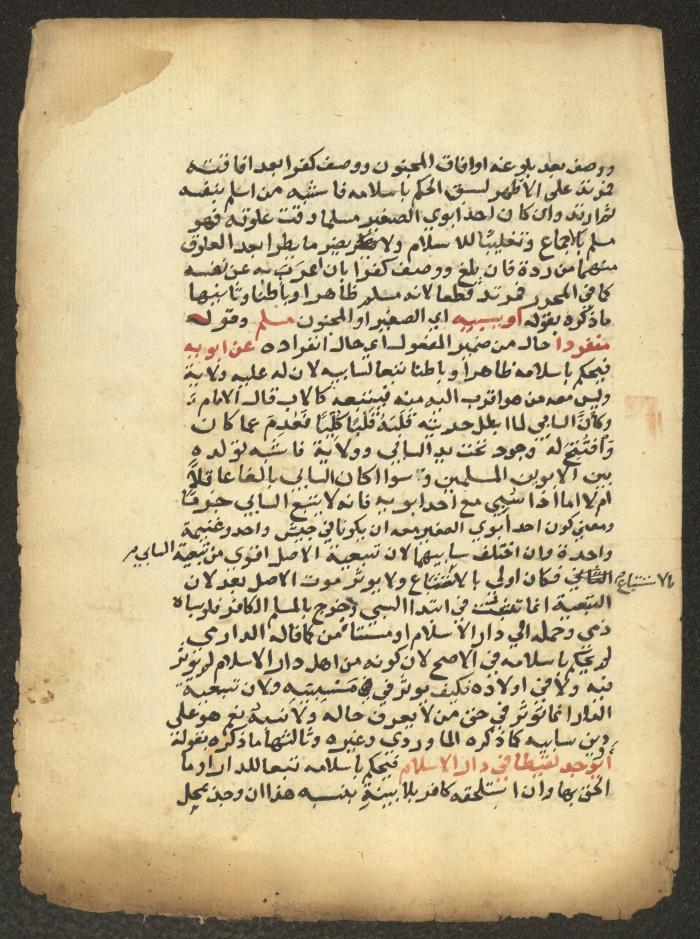 ووصف بعد بلوغه او افاق المجنون ووصف كفرا بعد افاقته
فمرتد على الاظهر لسبق الحكم باسلامه فاشبه من اسلم بنفسه
ثم ارتد وان كان احد ابوي الصغير مسلما وقت علوقه فهو
مسلم بالاجماع وتغليبا للاسلام ولا يضر ما يطرا بعد العلوق
منهما من ردة فان بلغ ووصف كفرا بان اعرب به عن نفسه
كما في المحرر فمرتد قطعا لانه مسلم ظاهرا وباطنا وثانيها
ما ذكره بقوله او بسبيه اي الصغير او المجنون مسلم وقوله
منفردا حال من ضمير المفعول اي حال انفراده عن ابويه
فيحكم باسلامه ظاهرا وباطنا تبعا لسابيه لان له عليه ولاية
وليس معه من هو اقرب اليه منه فيتبعه كالاب قال الامام
وكان السابي لما ابطل حريته قلبه قلبا كليا فعدم عما كان
وافتتح له وجود تحت يد السابي وولاية فاشبه تولده
بين الابوين المسلمين وسوا اكان السابي بالغا عاقلا
ام لا اما اذا سبي مع احد ابويه فانه لا يتبع السابي جزما
ومعنى كون احد ابوي الصغير معه ان يكونا في جيش واحد وغنيمة
واحدة وان اختلف سابيهما لان تبعية الاصل اقوى من تبعية السابي
فكان اولى بالاستتباع ولا يوثر موت الاصل بعد لان
التبعية انما تثبت في ابتدا السبي وخرج بالمسلم الكافر فلو سباه
ذمي وحمله الى دار الاسلام او مستامن كما قاله الدارمي
لم يحكم باسلامه في الاصح لان كونه من اهل دار الاسلام لم يوثر
فيه ولا في اولاده فكيف يوثر في مسبيه ولان تبعية
الدار انما توثر في حق من لا يعرف حاله ولا نسبه نعم هو على
دين سابيه كما ذكره الماوردي وغيره وثالثها ما ذكره بقوله
او وجد لقيطا في دار الاسلام فيحكم باسلامه تبعا للدار وما
الحق بها وان استلحقه كافر بلا بينة بنسبه هذا ان وجد بمحل
بالاستتباع